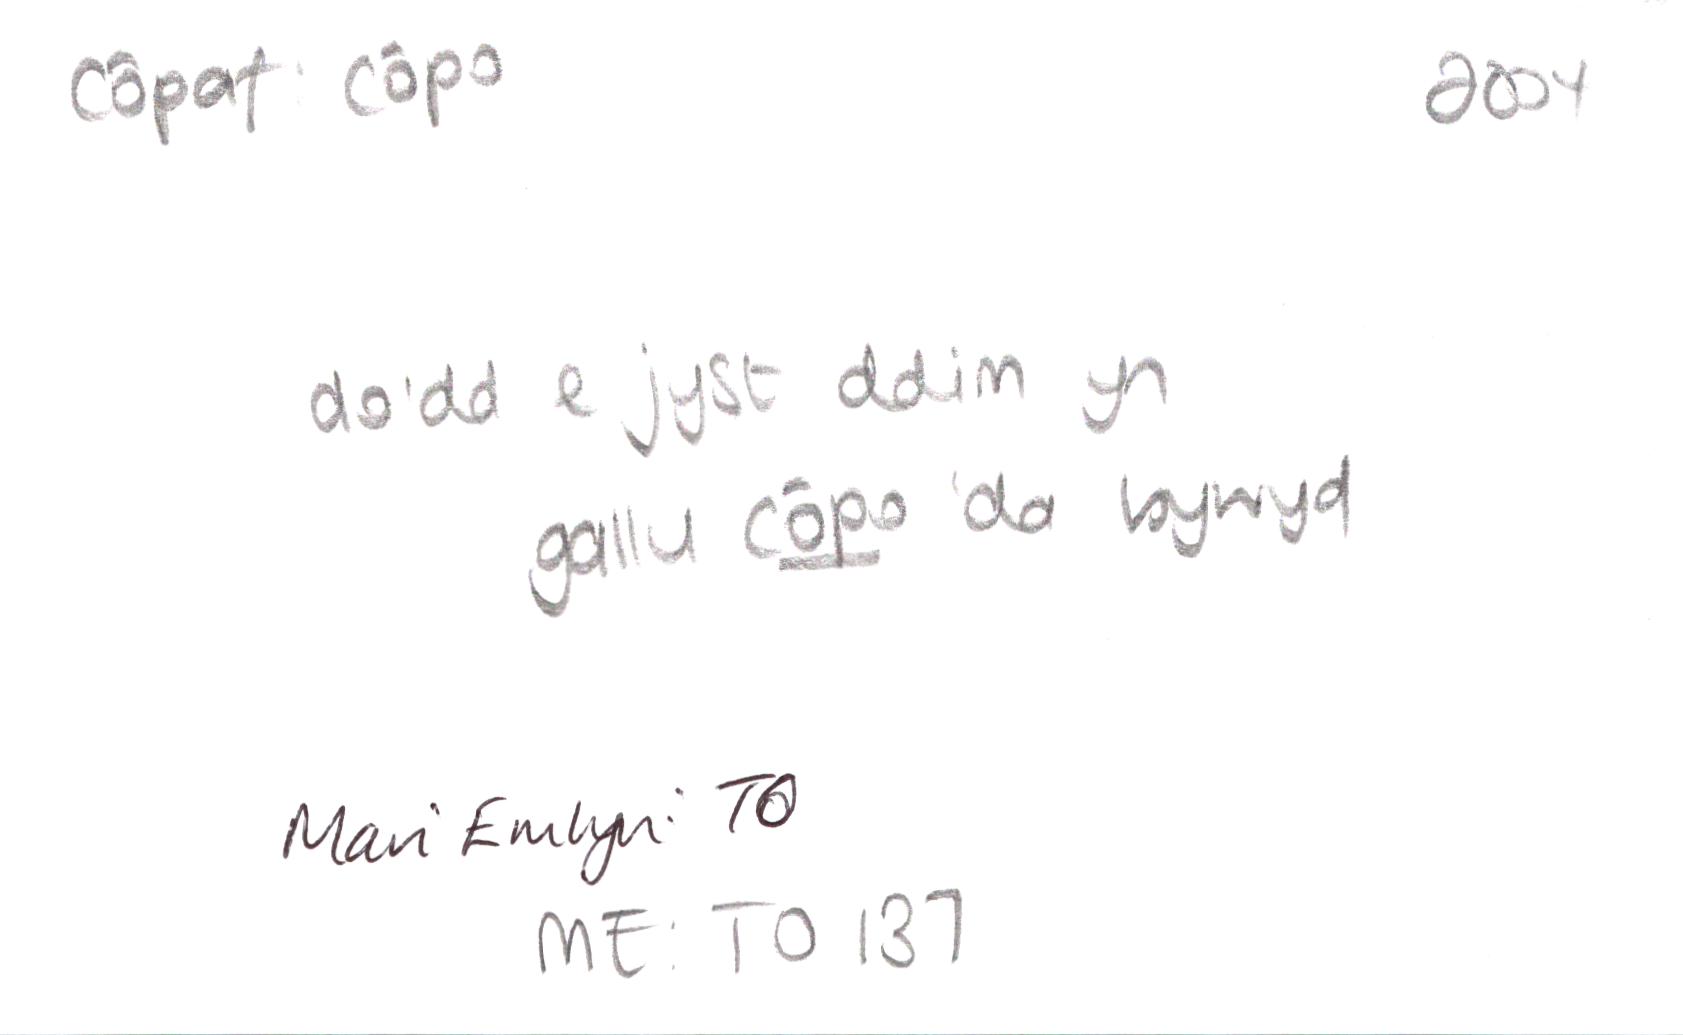 Côpaf: côpo 2004
do'dd e jyst ddim yn
gallu côpo 'da bywyd
Mari Emlyn: TO
ME: TO 137